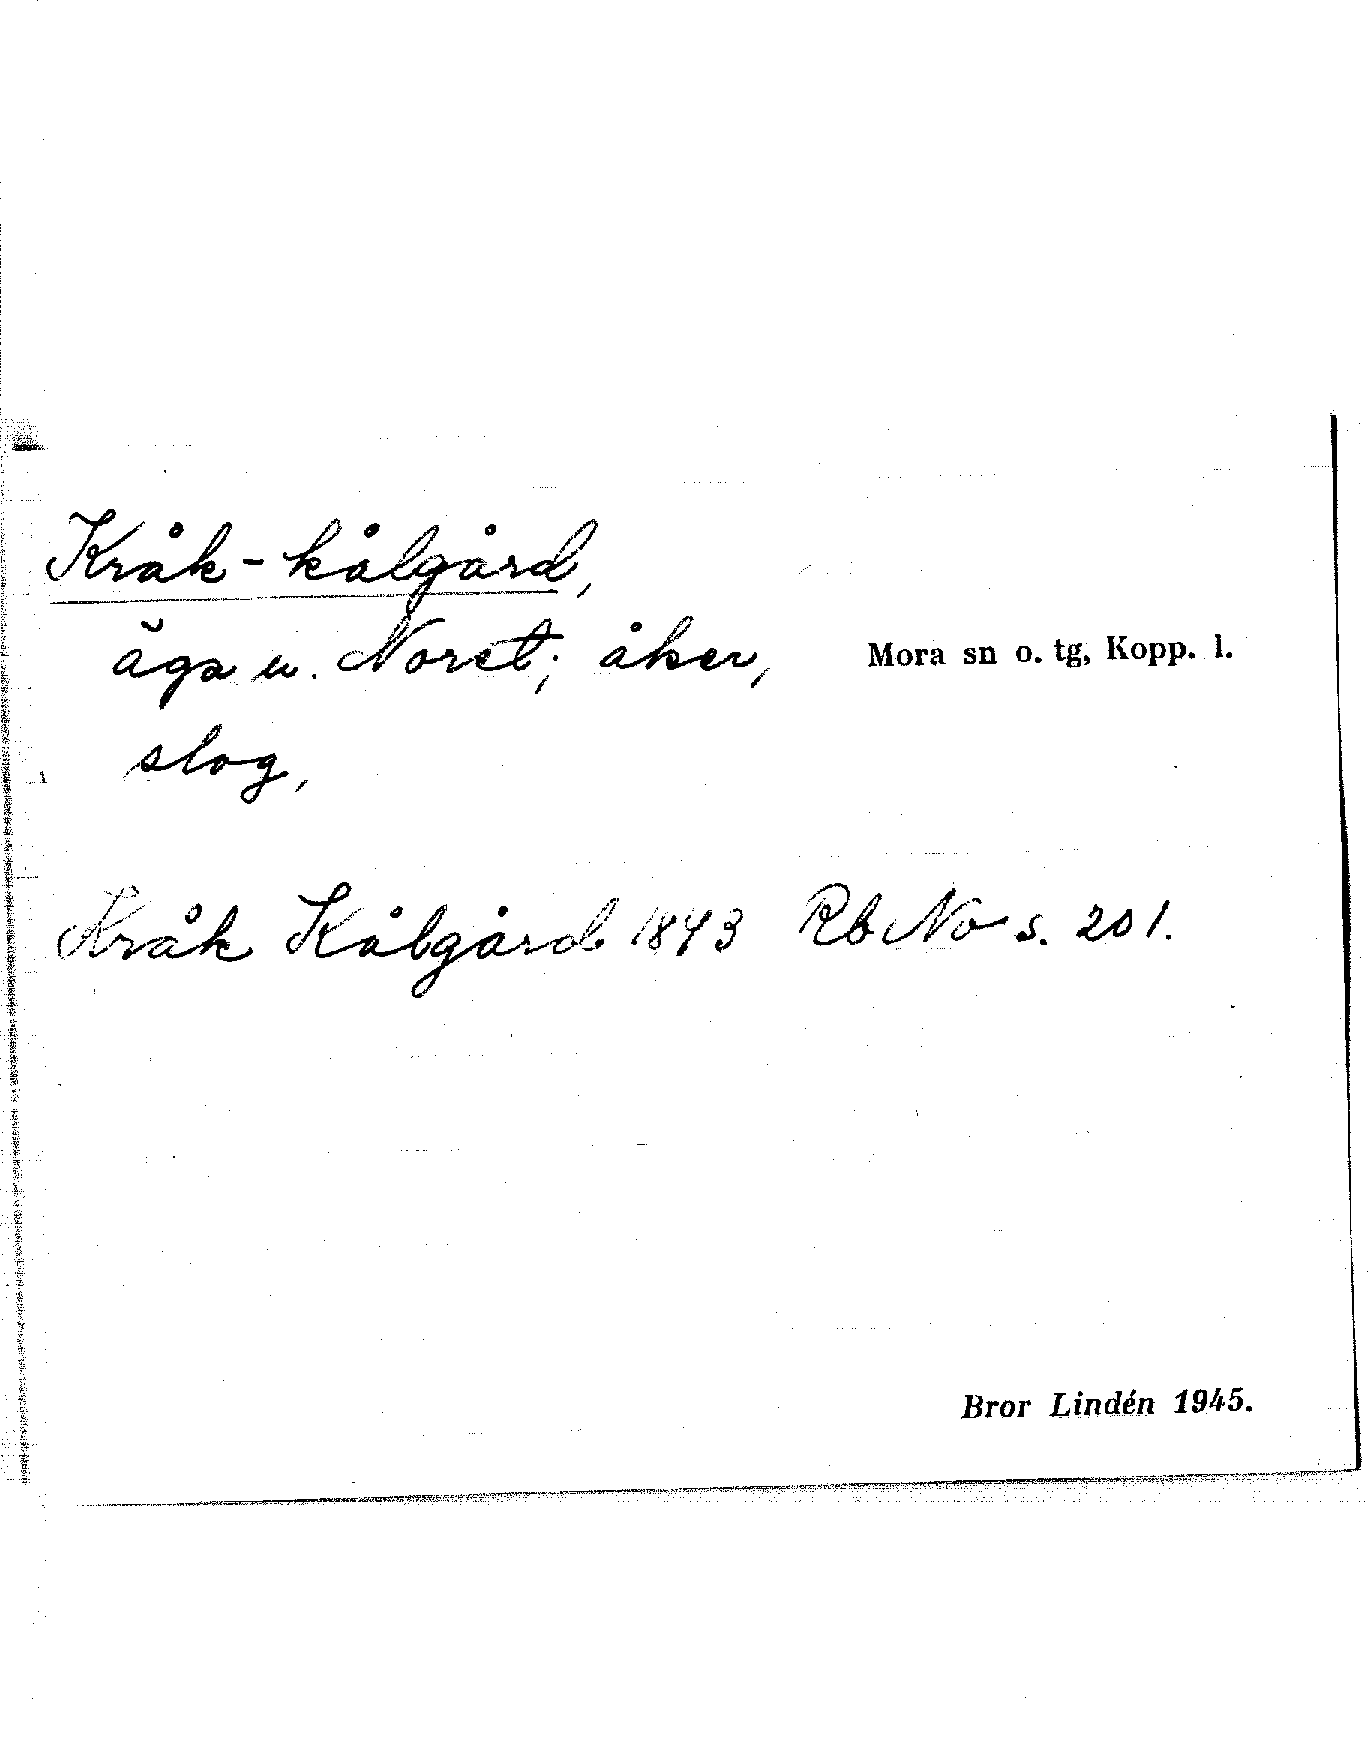 Kråk-kålgård,
äga u. Noret; åker,
Mora sn o. tg, Kopp. l.
slog,
Kråk Kålgård 1843 Rb No s. 201.
Bror Lindén 1945.